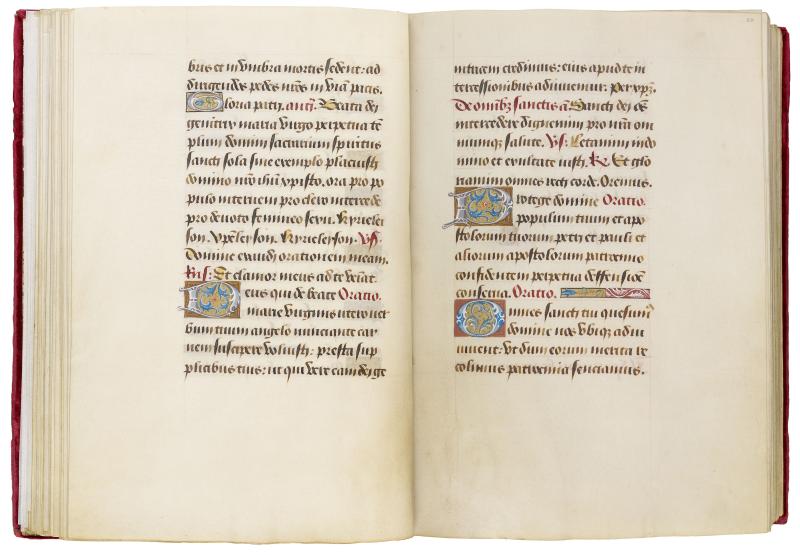 bris et in vmbra mortis sedent: ad
dirigendos pedes nr̄os in viā pacis.
Gloria patri. antꝭ. Beata dei
genitrix maria virgo perpetua tē
plum domini sacrarium spiritus
sancti sola sine exemplo placuisti
domino nr̄o ihū xp̄isto. ora pro po
pulo interueni pro clero intercede
pro deuoto femineo sexu. Kyrielei
son. Xp̄eleyson. Kyrieleyson. Vs.
Domine exaudi orationem meam.
Rn̄s: Et clamor meus ad te veniat.
Deus qui de beate Oratio.
marie virginis vtero ver
bum tuum angelo nunciante car
nem suscipere voluisti: presta sup
plicibus tuis: vt qui vere eam dei ge
nitricem credimus: eius apud te in
tercessionibus adiuuemur. per xp̄ꝫ.
De om̄ibꝫ sanctis añ Sancti dei oēs
intercedere dignemini pro nr̄a om
niumqꝫ salute. Vs: Letamini in do
mino et exultate iusti. R. Et glo
riamini omnes recti corde. Oremus.
Protege domine Oratio.
populum tuum et apo
stolorum tuorum petri et pauli et
aliorum apostolorum patrocinio
confidentem perpetua deffensiōe
conserua. Oratio.
Omnes sancti tui quesum̄
domine nos vbiqꝫ adiu
uuent: vt dum eorum merita re
colimus patrocinia senciamus.